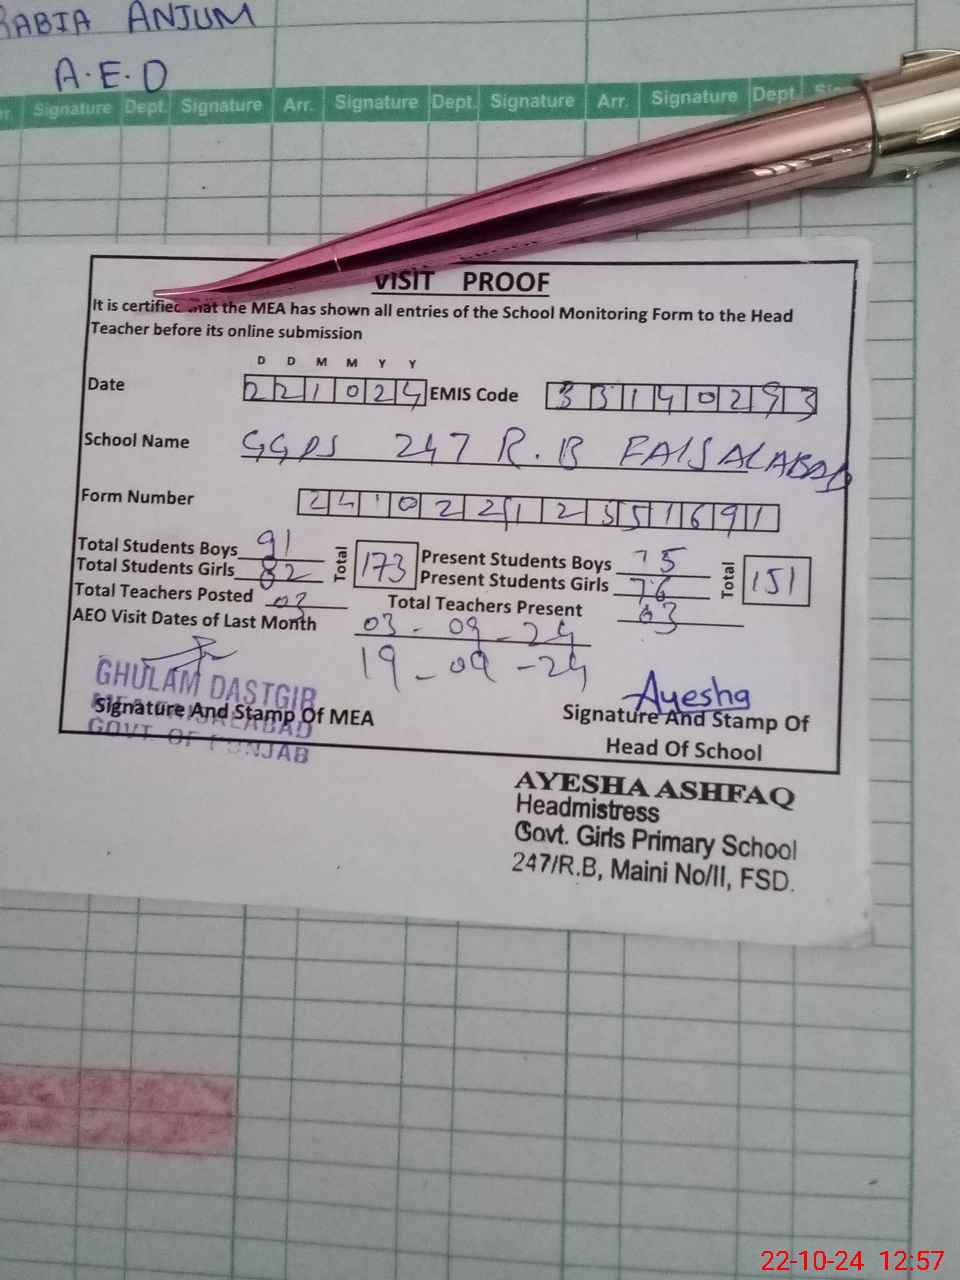 RABIA ANJUM
A.E.O
Signature Dept. Signature Arr. Signature Dept. Signature Arr. Signature Dept.
VISIT PROOF
It is certified that the MEA has shown all entries of the School Monitoring Form to the Head
Teacher before its online submission
D D M M Y Y
Date 221024 EMIS Code 33140293
School Name GGPS 247 R.B FAISALABAD
Form Number
Total Students Boys 91 Total 173 Present Students Boys 75 Total 151
Total Students Girls 82 Present Students Girls 76
Total Teachers Posted 03 Total Teachers Present 03
AEO Visit Dates of Last Month 03-09-24
19-09-24
GHULAM DASTGIR
MEA FAISALABAD
GOVT. OF PUNJAB
Signature And Stamp Of MEA
Ayesha
Signature And Stamp Of
Head Of School
AYESHA ASHFAQ
Headmistress
Govt. Girls Primary School
247/R.B, Maini No/II, FSD.
22-10-24 12:57